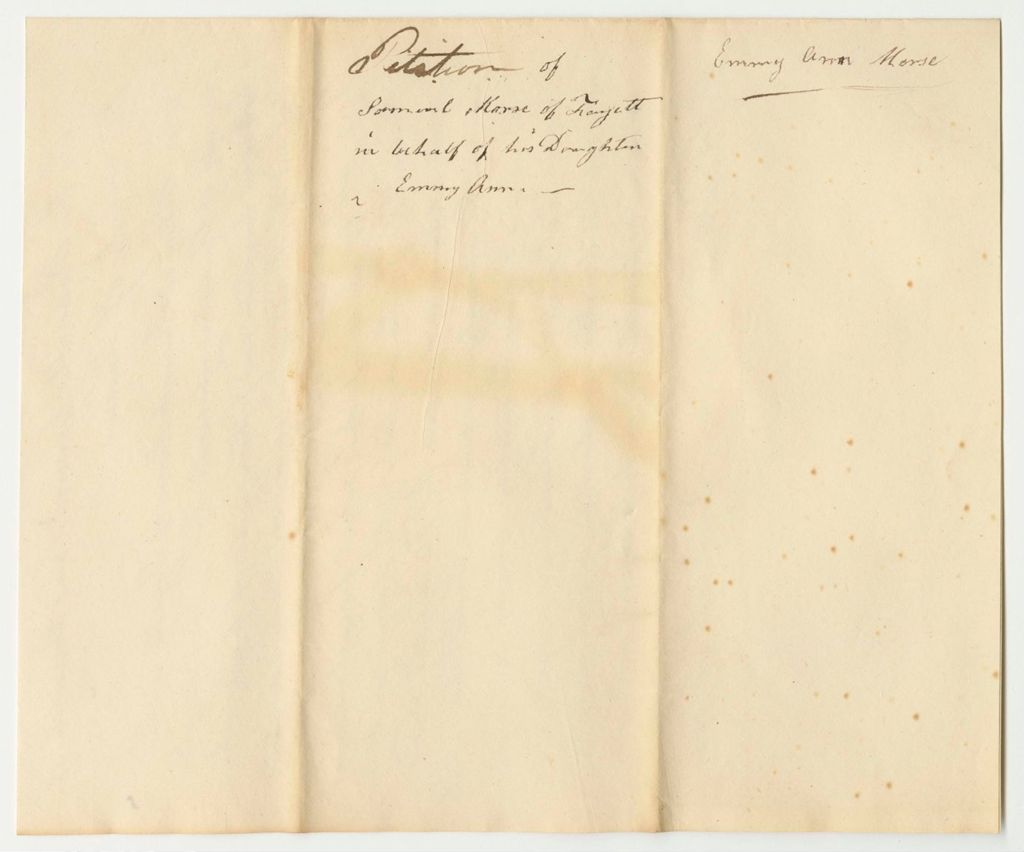 Petition of
Samuel Morse of Fayett
in behalf of his Daughter
Emmy Ann. —
Emmy Ann Morse